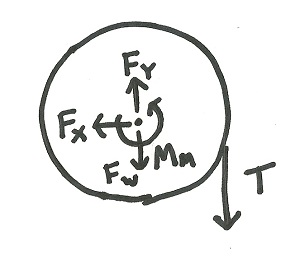 Fy
Fx
Fw
Mm
T